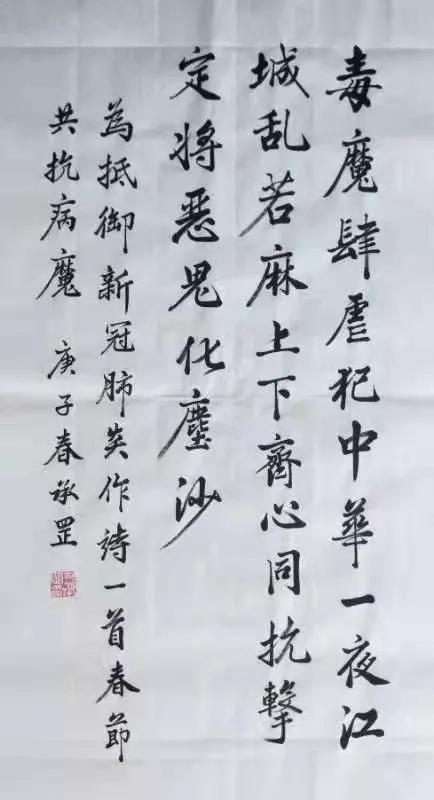 毒魔肆虐犯中華一夜江
城乱若麻上下齊心同抗擊
定将惡鬼化塵沙
為抵御新冠肺炎作詩一首春節
共抗病魔 庚子春承罡